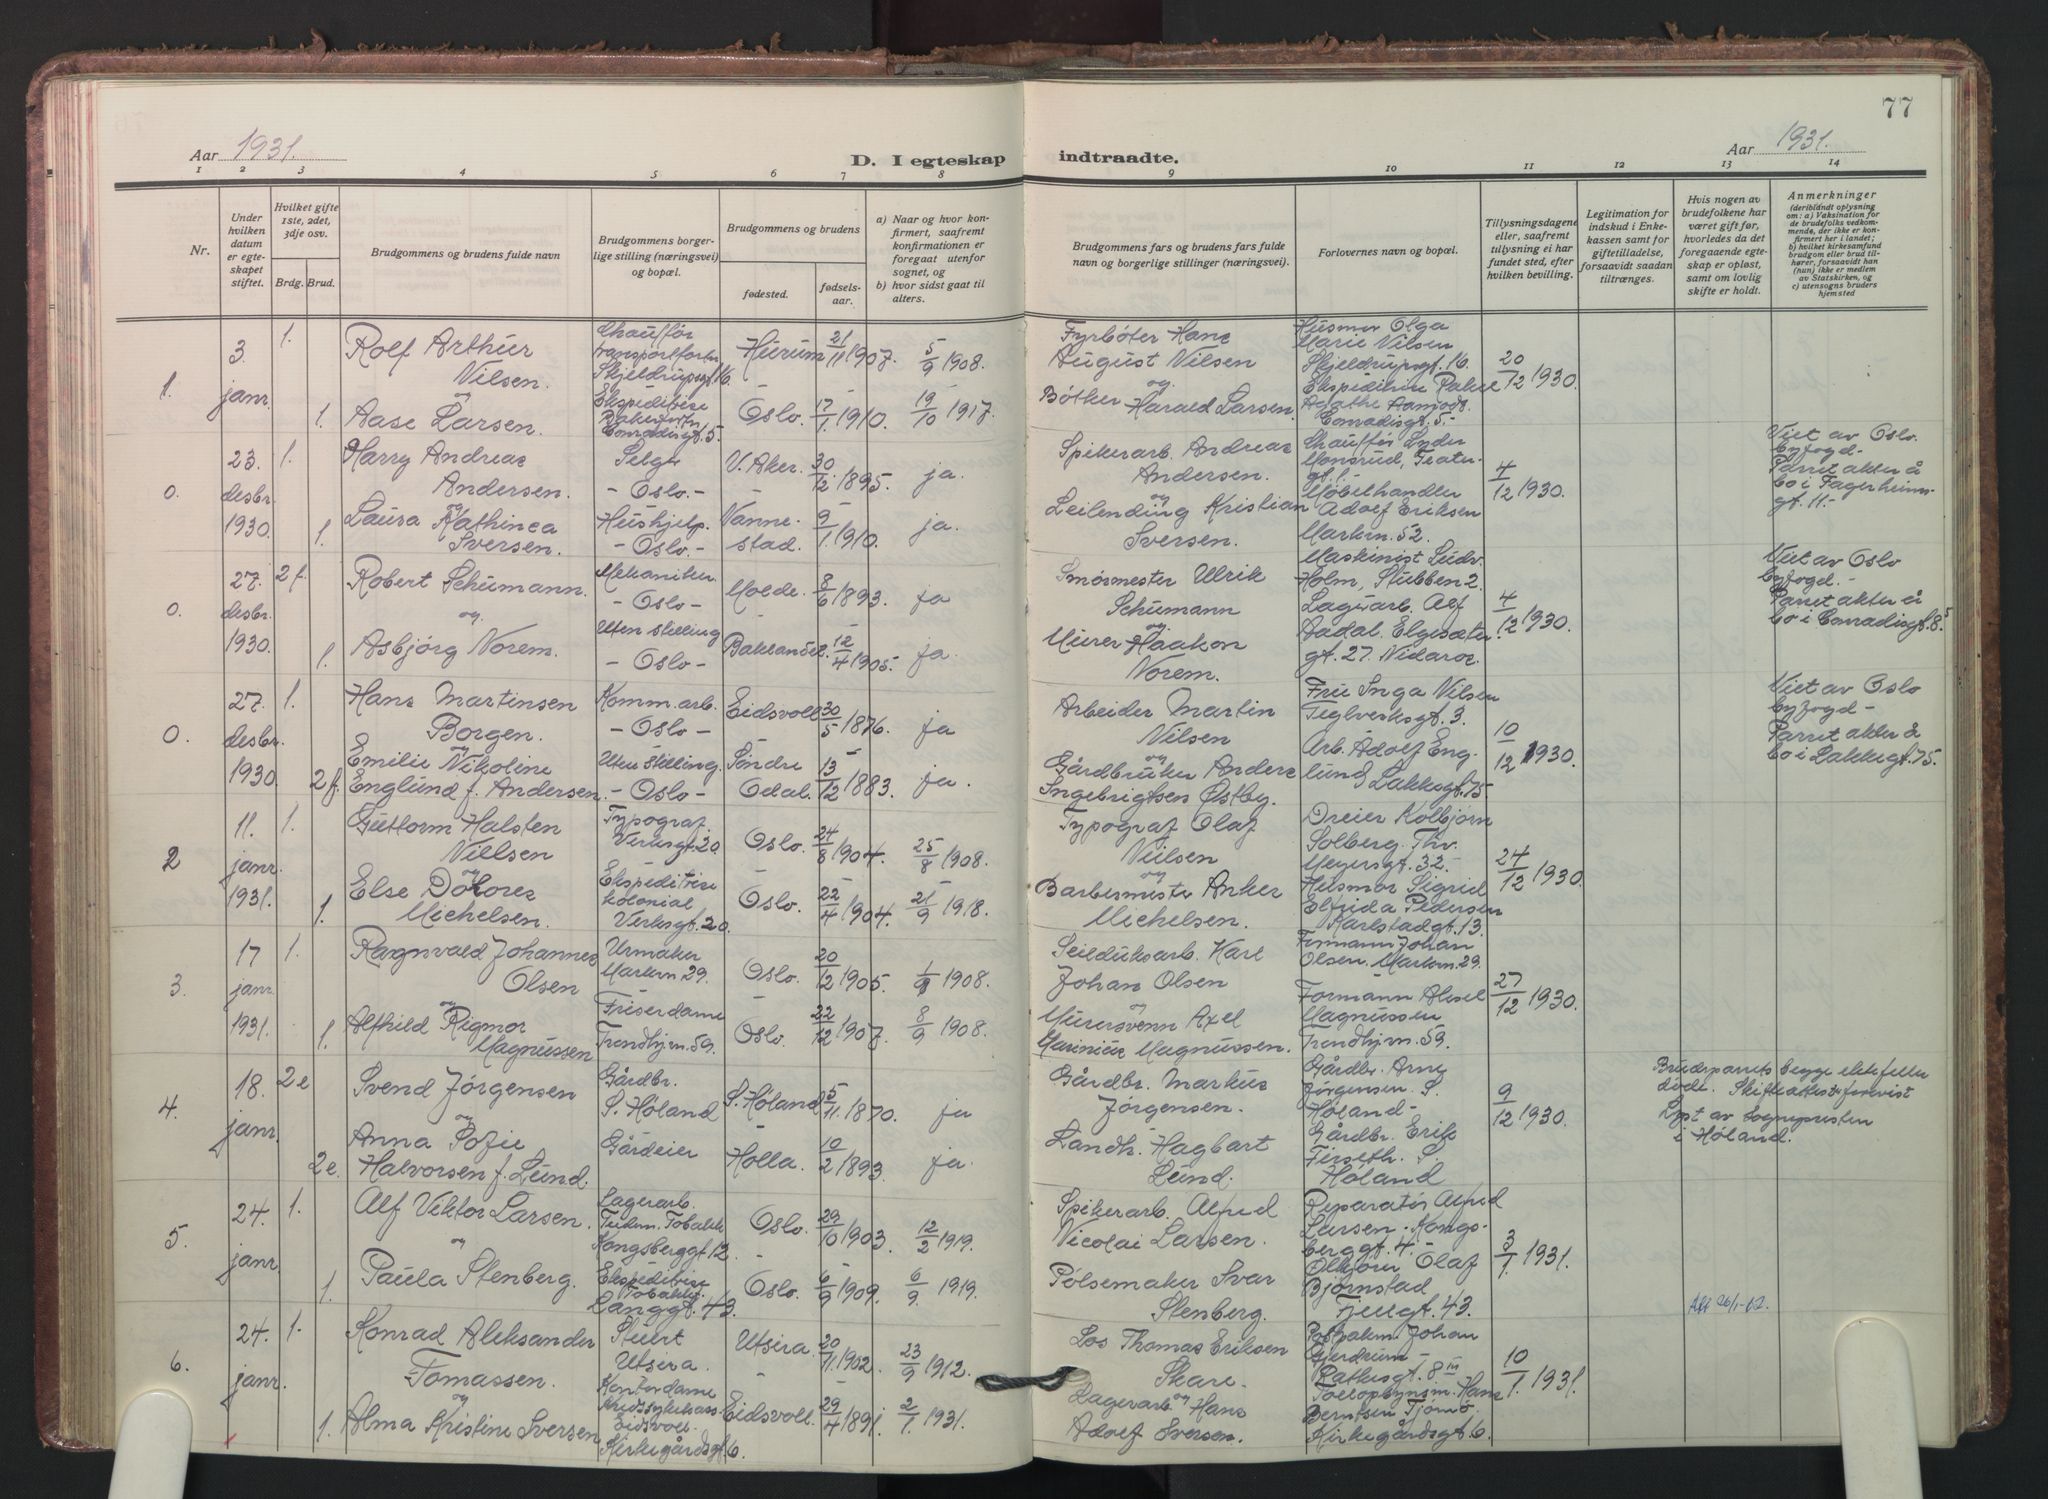 77
Aar 1931.
D. I egteskap
indtraadte.
Aar 1931.
1 2 3 4 5 6 7 8 9 10 11 12 13 14
Nr.
Under hvilken datum er egteskapet stiftet.
Hvilket gifte 1ste, 2det, 3dje osv.
Brdg. Brud.
Brudgommens og brudens fulde navn
Brudgommens borgerlige stilling (næringsvei) og bopæl.
Brudgommens og brudens
fødested.
fødselsaar.
a) Naar og hvor konfirmert, saafremt konfirmationen er foregaat utenfor sognet, og
b) hvor sidst gaat til alters.
Brudgommens fars og brudens fars fulde navn og borgerlige stillinger (næringsvei).
Forlovernes navn og bopæl.
Tillysningsdagene eller, saafremt tillysning ei har fundet sted, efter hvilken bevilling.
Legitimation for indskud i Enkekassen samt for giftetilladelse, forsaavidt saadan tiltrænges.
Hvis nogen av brudefolkene har været gift før, hvorledes da det foregaaende egteskap er opløst, samt om lovlig skifte er holdt.
Anmerkninger
(deriblandt oplysning om: a) Vaksination for de brudefolks vedkommende, der ikke er konfirmert her i landet; b) hvilket kirkesamfund brudgom eller brud tilhører, forsaavidt han (hun) ikke er medlem av Statskirken, og c) utensogns bruders hjemsted
1. 3. janr. 1.
Rolf Arthur
Nilsen.
og
1. Aase Larsen.
Chauffør
transportfortn
Skjeldrupsgt. 16.
Ekspeditrise
Conradisgt. 5.
Hurum 21/11 1907. 5/9 1908.
Oslo. 17/1 1910. 19/10 1917.
Fyrbøter Hans
August Nilsen
og
Bøtker Harald Larsen.
Husmor Olga
Marie Nilsen
Skjeldrupsgt. 16.
Agathe Aamodt.
Conradisgt. 5.-
20/12 1930.
0. 23. desbr. 1930. 1.
Harry Andreas
Andersen.
og
1. Laura Kathinca
Iversen.
Selger
- Oslo. -
Hushjelp.
- Oslo. -
V. Aker. 30/12 1895. ja.
Nannestad. 9/1 1910. ja.
Spikerarb. Andreas
Andersen.
og
Leilending Kristian
Iversen.
Chauffør Lyder
Monsrud, Teatergt. 1.-
Møbelhandler
Adolf Eriksen
Markvn. 52.
4/12 1930.
Viet av Oslo.
byfogd-
Parret akter å
bo i Fagerheimsgt. 11.-
0. 27. desbr. 1930. 2f.
Robert Schumann.
og
1. Asbjørg Norem.
Mekaniker.
- Oslo -
Uten stilling
- Oslo -
Molde. 8/6 1893. ja
Baklandet. 12/4 1905. ja.
Smørmester Ulrik
Schumann
og
Murer Haakon
Norem.
Maskinist Ludv.
Holm, Stubben 2.
Lagerarb. Alf
Aadal. Elgesæter
gt. 27. Nidaros.
4/12 1930.
Viet av Oslo
byfogd. -
Parret akter å
bo i Conradisgt. 8.
0. 27. desbr. 1930. 1.
Hans Martinsen
Borgen.
og
Emilie Nikoline
2f. Englund f. Andersen.
Komm. arb.
- Oslo -
Uten stilling.
- Oslo -
Eidsvoll 30/5 1876. ja
Søndre Odal. 13/12 1883. ja.
Arbeider Martin
Nilsen
og
Gårdbruker Anders
Ingebrigtsen Østby.
Fru Inga Nilsen
Teglverksgt. 3.
Arb. Adolf Englund Lakkegt. 75
10/12 1930.
Viet av Oslo
byfogd -
Parret akter å
bo i Lakkegt. 75.
2 11. janr. 1931. 1.
Guttorm Halsten
Nielsen
og
Else Dolores
1. Michelsen.
Typograf
Verksgt. 20.
Ekspeditrise
kolonial
Verksgt. 20.
Oslo. 24/8 1904. 25/8 1908.
Oslo. 22/4 1904. 21/9 1918.
Typograf Olaf
Nielsen
og
Barbermester Anker
Michelsen.
Dreier Kolbjørn
Solberg. Thv.
Meyersgt. 32.-
Husmor Sigrid
Elfrida Pedersen
Karlstadgt. 13.
24/12 1930.
3. 17 janr. 1931. 1.
Ragnvald Johannes
Olsen
og
1. Alfhild Rigmor
Magnussen
Urmaker
Markvn 29.
Friserdame
Trondhjvn. 59.
Oslo. 20/12 1905. 1908.
Oslo. 22/12 1907. 8/9 1908.
Seilduksarb. Karl
Johan Olsen
og
Murersvenn Axel
Marinius Magnussen.
Formann Johan
Olsen. Markvn. 29.
Formann Aksel
Magnussen
Trondhjvn. 59.
27/12 1930.
4. 18. janr. 2e
Svend Jørgensen
og
Anna Sofie
2e. Halvorsen f. Lund.
Gårdbr.
S. Høland
Gårdeier
S. Høland 5/11 1870. ja
Holla. 10/2 1893. ja.
Gårdbr. Markus
Jørgensen.
Landh. Hagbart
Lund.
Gårdbr. Arne
Jørgensen. S.
Høland -
Gårdbr. Erik
Firseth. S.
Høland
9/12 1930.
Brudeparrets begge ektefeller
døde. Skifteattester forevist
Lyst av sogneprsten
i Høland.
5. 24. janr. 1.
Alf Viktor Larsen.
og
1. Paula Stenberg.
Lagerarb.
Tiedem. Tobakk
Kongsberggt. 12.
Ekspeditrise
Tobakk.
Langgt. 43.
Oslo. 29/10 1903. 12/2 1919.
Oslo. 6/9 1909. 6/9. 1919.
Spikerarb. Alfred
Nicolai Larsen.
Pølsemaker Ivar
Stenberg.
Reparatør Alfred
Larsen - Kongsberggt. 4. -
Olaf
Bjørnstad
Fjellgt. 43.
3/1 1931.
6. 24. janr. 1.
Konrad Aleksander
Tomassen.
og
1. Alma Kristine Iversen
Stuert
Utsira.
Kontordame
Eidsvoll.
Kirkegårdsgt. 6.
Utsira. 20/11 1902. 23/9 1912.
Eidsvoll. 29/4 1891. 2/1 1931.
Los Thomas Eriksen
Skare.
og
Lagerarb. Hans
Adolf Iversen.
Postpakm. Johan
Gjerdrum -
Rathkesgt. 8 III
Tolloppsynsm. Hans
Berntsen Tjømø.
Kirkegårdsgt. 6.
10/1 1931.
Att 26/1-62.